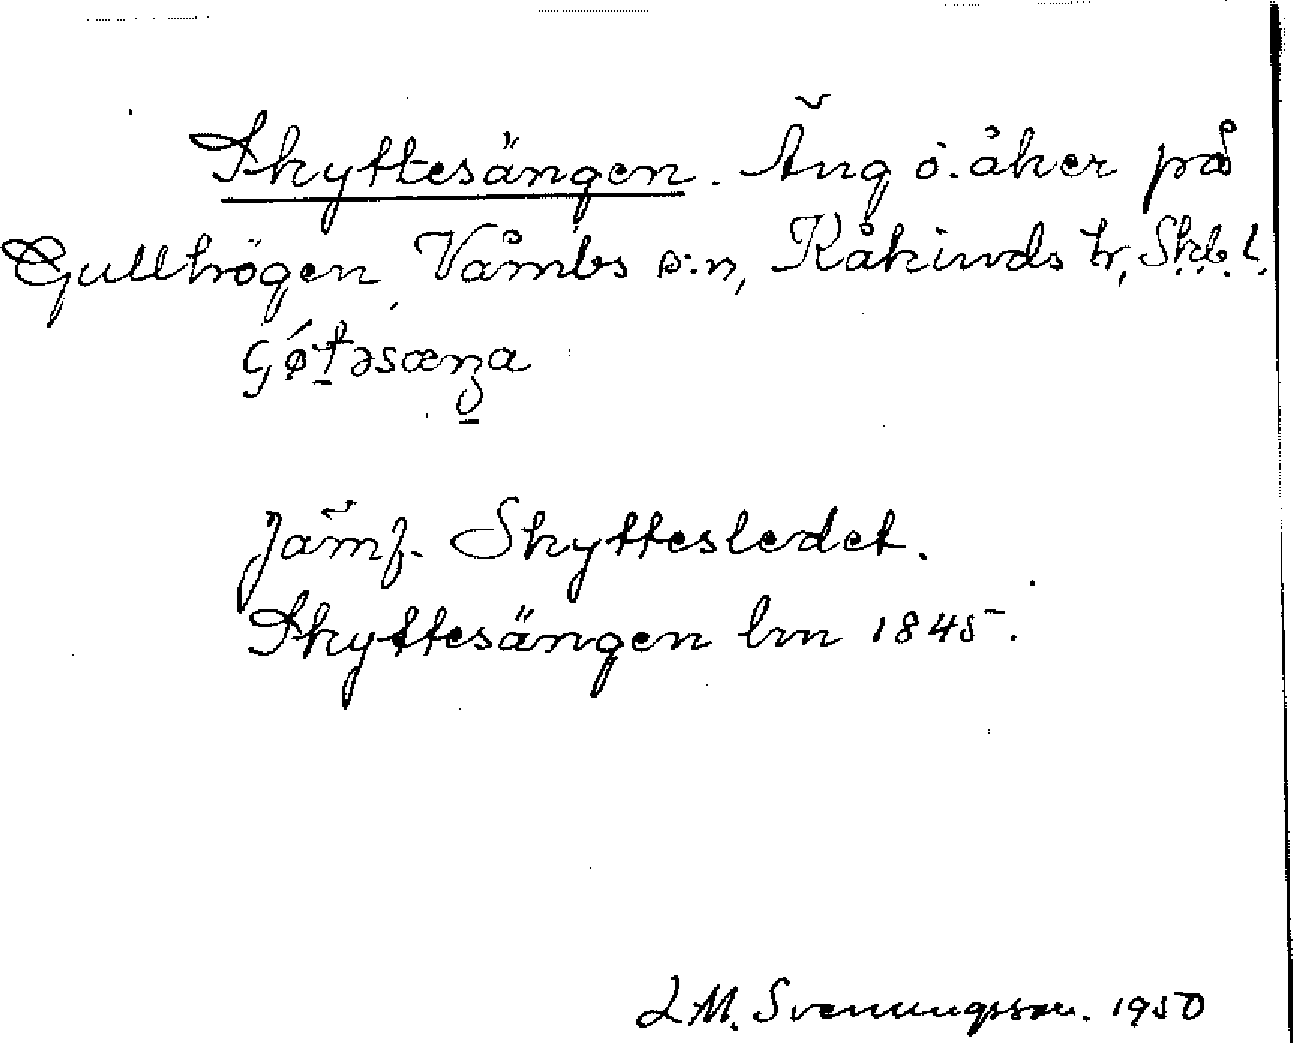 Skyttesängen. Äng o. åker på
Gullhögen, Våmbs s:n, Kåkinds hr, Skb. l.
Jämf. Skyttesledet.
Skyttesängen lm 1845.
L M. Svenungsson. 1950